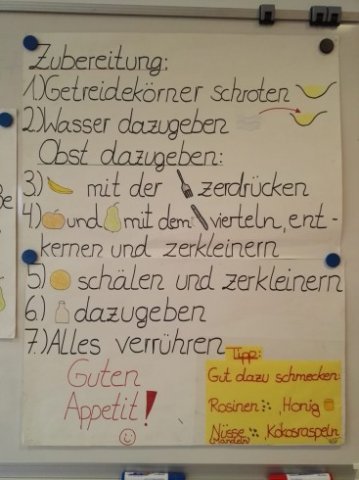 Zubereitung:
1) Getreidekörner schroten
2) Wasser dazugeben
Obst dazugeben:
3) mit der zerdrücken
4) und mit dem vierteln, ent-
kernen und zerkleinern
5) schälen und zerkleinern
6) dazugeben
7.) Alles verrühren
Guten
Appetit!
Tipp:
Gut dazu schmecken:
Rosinen, Honig
Nüsse Kokosraspeln
(Mandeln)